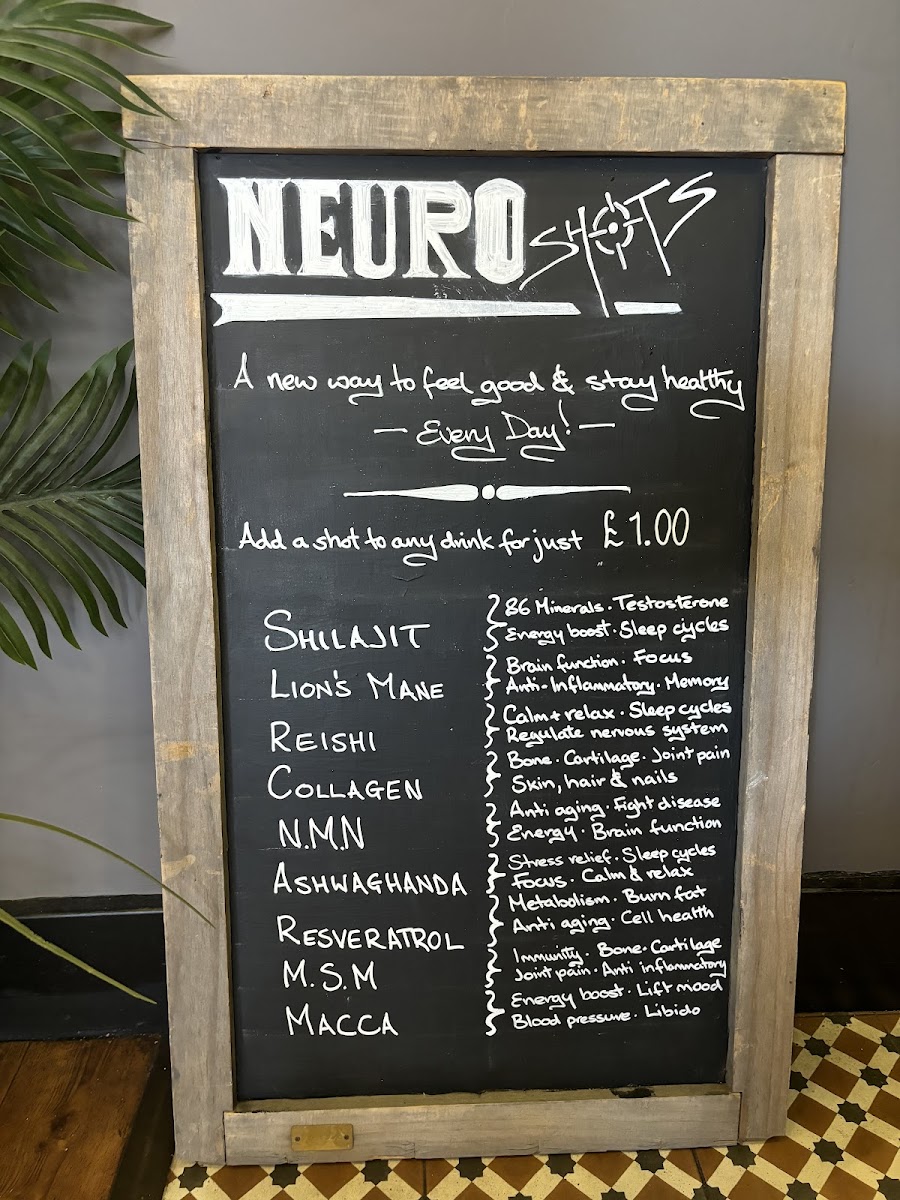 NEURO SHOTS
A new way to feel good & stay healthy
— Every Day! —
Add a shot to any drink for just £1.00
SHILAJIT
86 Minerals · Testosterone
Energy boost · Sleep cycles
LION'S MANE
Brain function · Focus
Anti-Inflammatory · Memory
REISHI
Calm + relax · Sleep cycles
Regulate nervous system
COLLAGEN
Bone · Cartilage · Joint pain
Skin, hair & nails
N.M.N
Anti aging · Fight disease
Energy · Brain function
ASHWAGHANDA
Stress relief · Sleep cycles
Focus · Calm & relax
RESVERATROL
Metabolism · Burn fat
Anti aging · Cell health
M.S.M
Immunity · Bone · Cartilage
Joint pain · Anti inflammatory
MACCA
Energy boost · Lift mood
Blood pressure · Libido